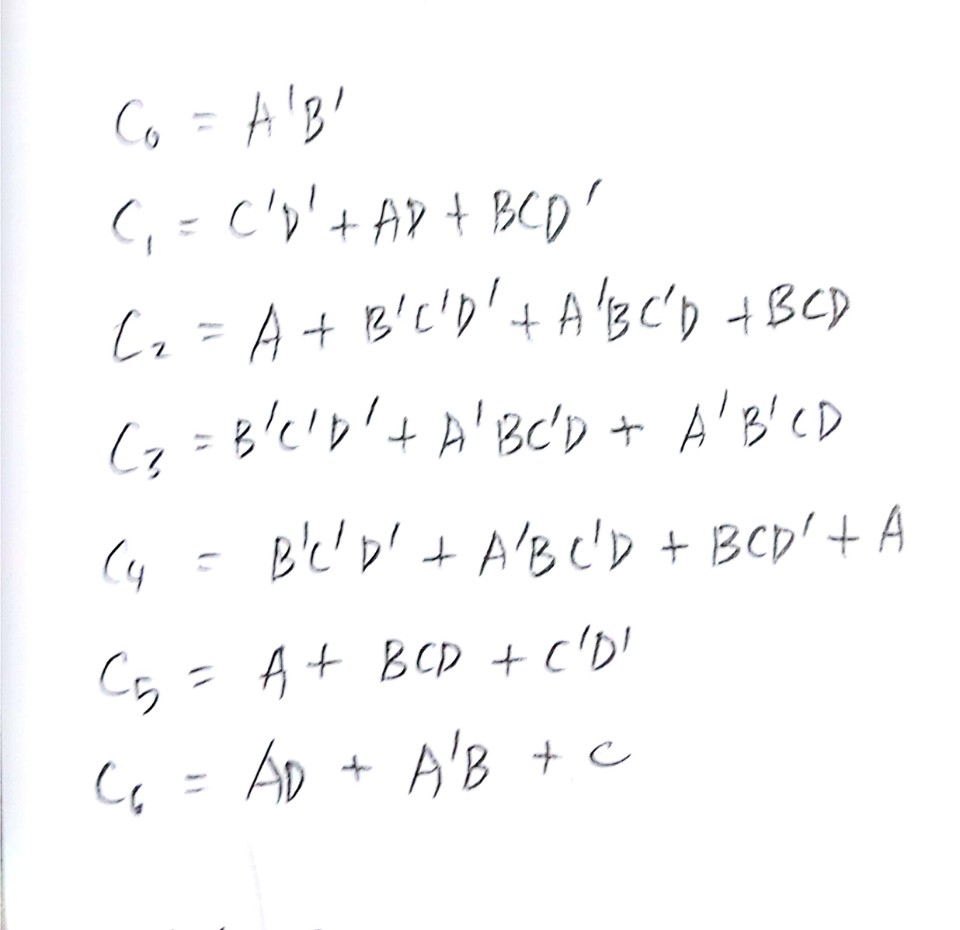 C₀ = A'B'
C₁ = C'D' + AD + BCD'
C₂ = A + B'C'D' + A'BC'D + BCD
C₃ = B'C'D' + A'BC'D + A'B'CD
C₄ = B'C'D' + A'BC'D + BCD' + A
C₅ = A + BCD + C'D'
C₆ = AD + A'B + C